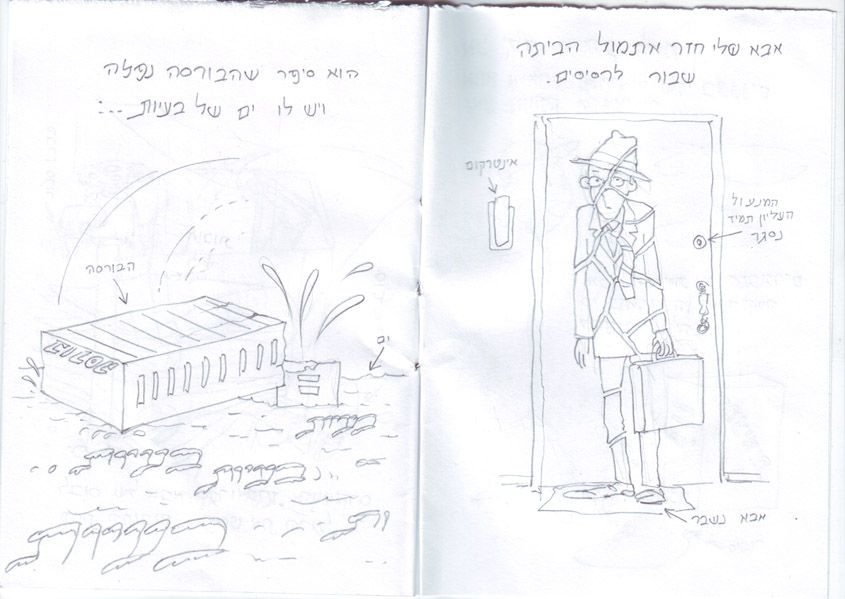 אבא שלי חזר אתמול הביתה
שבור לרסיסים.
אינטרקום
המנעול
העליון תמיד
נסגר
אבא נשבר
הוא סיפר שהבורסה נפלה
ויש לו ים של בעיות...:
הבורסה
ים
בעיות